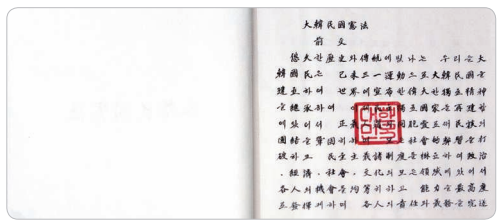 大韓民國憲法
前文
悠久한 歷史와 傳統에 빛나는 우리들 大
韓國民은 己未三一運動으로 大韓民國을
建立하여 世界에 宣布한 偉大한 獨立精神
을 繼承하여 이제 民主獨立國家를 再建함에
있어서 正義人道와 同胞愛로써 民族의
團結을 鞏固히 하며 모든 社會的 弊習을 打
破하고 民主主義諸制度를 樹立하여 政治
, 經濟, 社會, 文化의 모든 領域에 있어서
各人의 機會를 均等히 하고 能力을 最高度
로 發揮케 하며 各人의 責任과 義務를 完遂